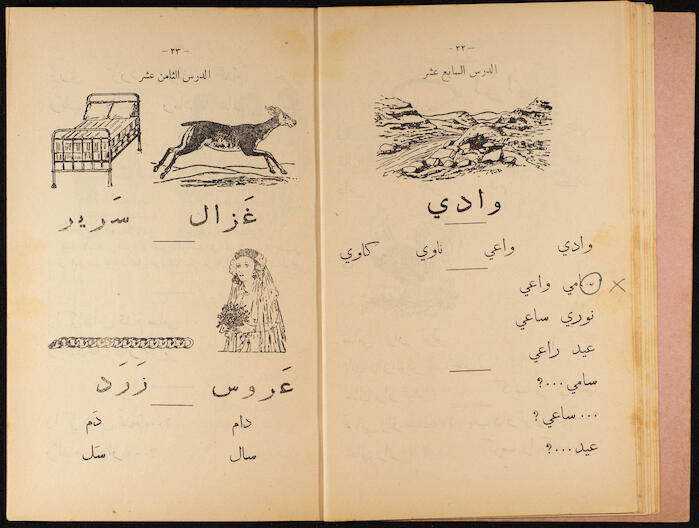 - ٢٢ -
الدرس السابع عشر
وادي
وادي واعي ناوي كاوي
سامي واعي ×
نوري ساعي
عيد راعي
سامي ...؟
... ساعي ؟
عيد ...؟
- ٢٣ -
الدرس الثامن عشر
غَزال سَرير
عَروس زَرَد
دام دَم
سال سَل